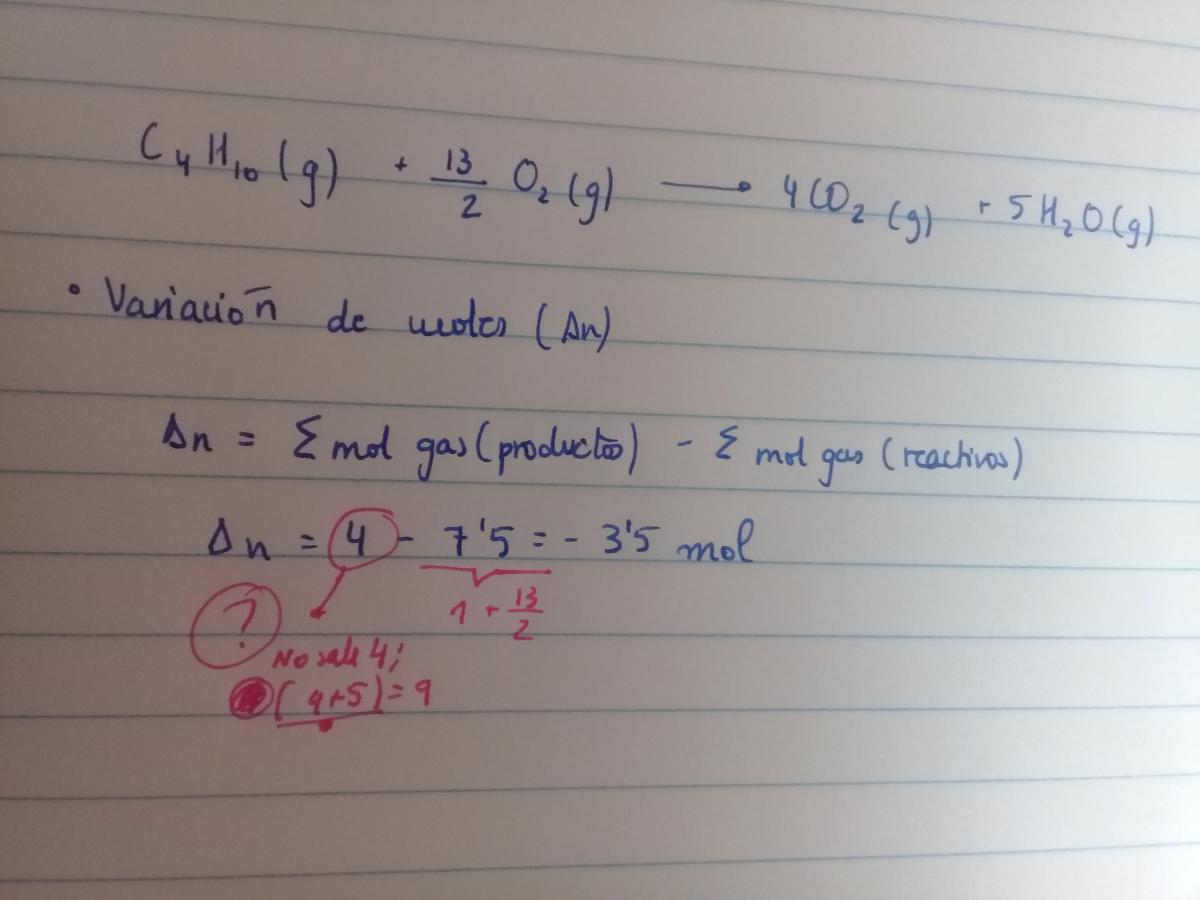 C₄H₁₀(g) + 13/2 O₂(g) → 4CO₂(g) + 5H₂O(g)
• Variación de moles (Δn)
Δn = Σ mol gas (productos) - Σ mol gas (reactivos)
Δn = 4 - 7'5 = - 3'5 mol
1 + 13/2
?
No sale 4;
(4+5) = 9